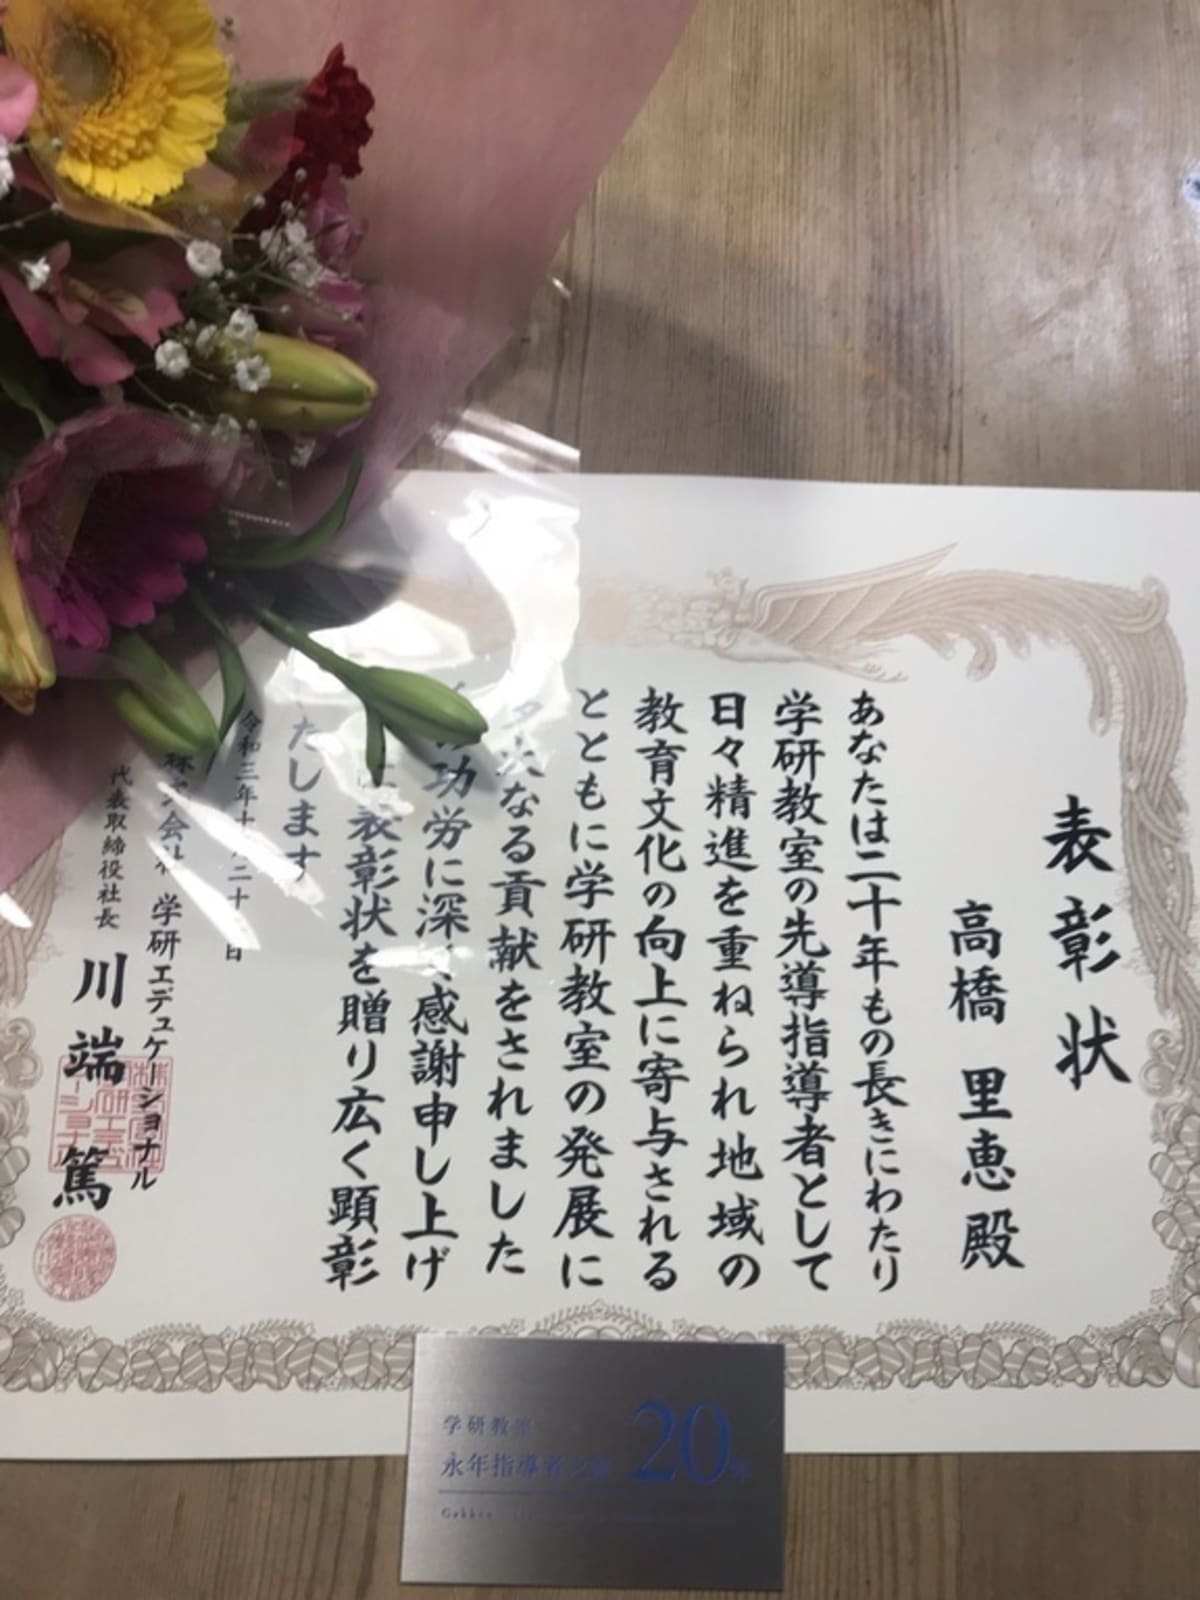 表彰状
高橋 里恵 殿
あなたは二十年もの長きにわたり
学研教室の先導指導者として
日々精進を重ねられ地域の
教育文化の向上に寄与される
とともに学研教室の発展に
なる貢献をされました
功労に深く感謝申し上げ
表彰状を贈り広く顕彰
たします
令和三年十 二十 日
株式会社 学研エデュケーショナル
代表取締役社長 川端 篤
学研教室
永年指導者 20
Gakken